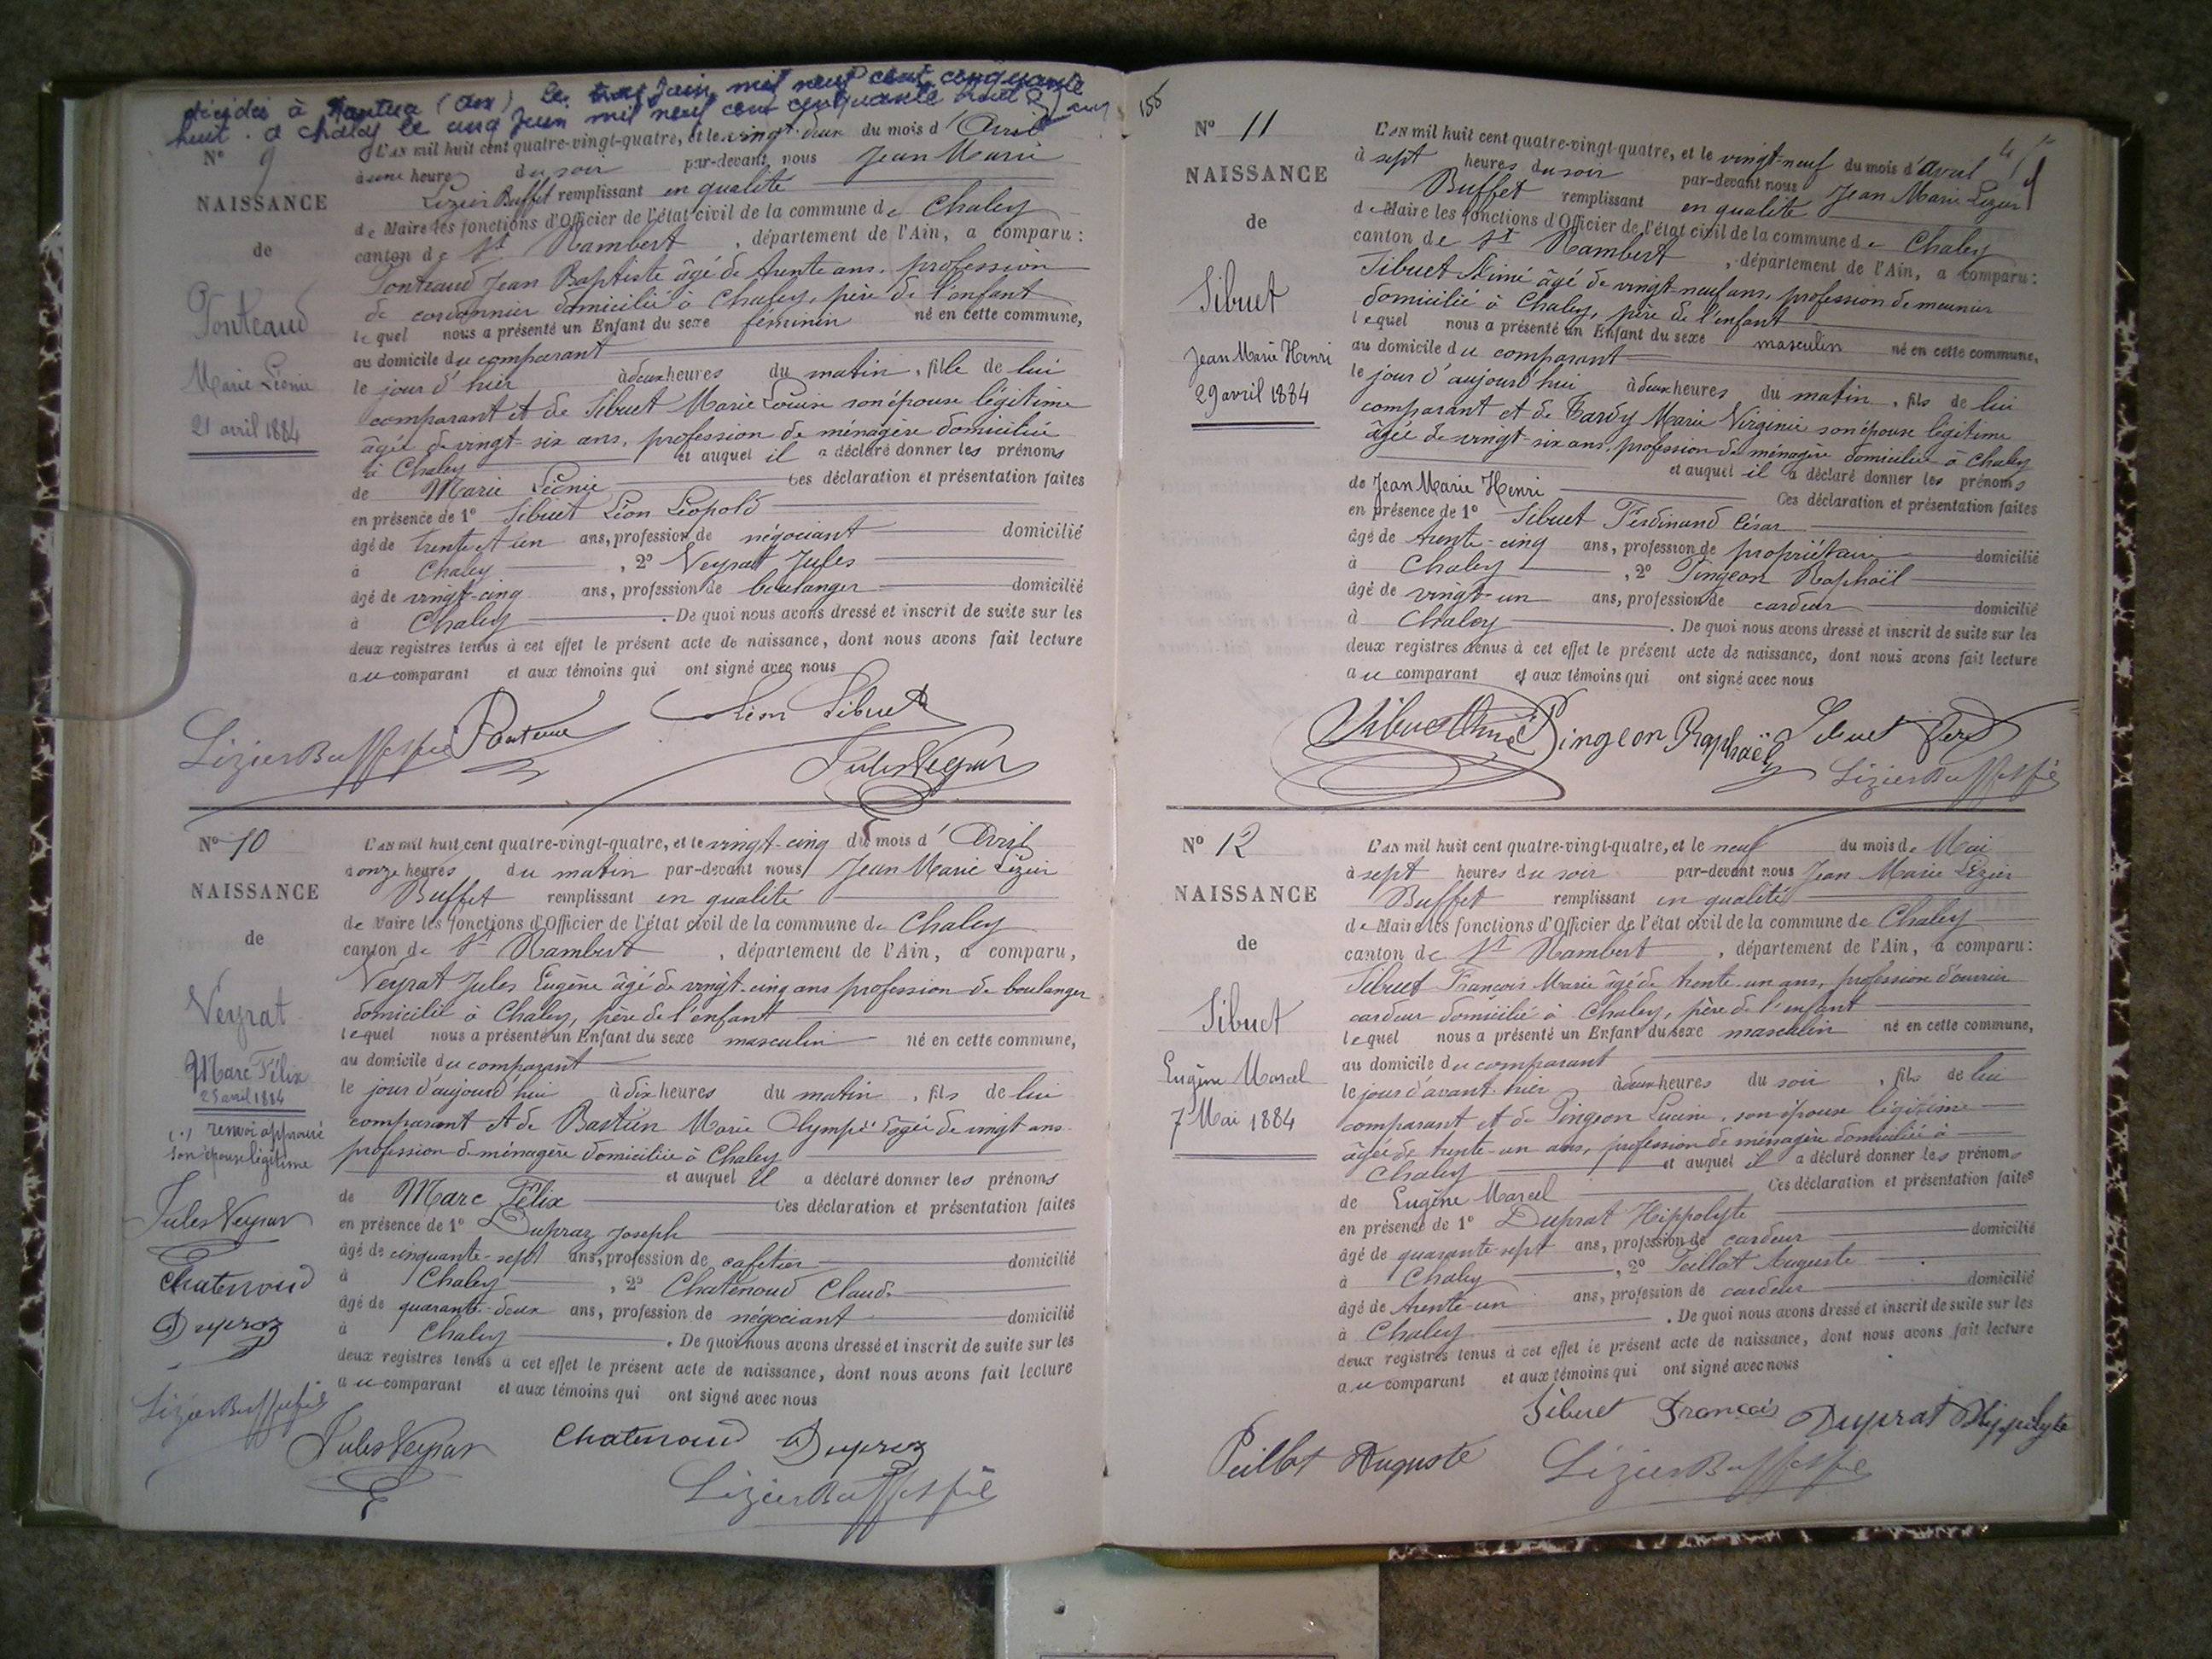 décédée à Nantua (Ain) le trois Juin mil neuf cent cinquante
huit. à Chaley le cinq Juin mil neuf cent cinquante huit
N° 9
NAISSANCE
de
Ponteaud
Marie Léonie
21 avril 1884
L'AN mil huit cent quatre-vingt-quatre, et le vingt-deux du mois d'Avril
à une heure du soir par-devant nous Jean Marie
Lézier Buffet remplissant en qualité
de Maire les fonctions d'Officier de l'état civil de la commune de Chaley
canton de St Rambert, département de l'Ain, a comparu:
Ponteaud Jean Baptiste âgé de trente ans, profession
de cordonnier domicilié à Chaley, père de l'enfant
lequel nous a présenté un Enfant du sexe féminin né en cette commune,
au domicile du comparant
le jour d'hier à deux heures du matin, fille de lui
comparant et de Sibuet Marie Louise son épouse légitime
âgée de vingt-six ans, profession de ménagère domiciliée
à Chaley et auquel il a déclaré donner les prénoms
de Marie Léonie Ces déclaration et présentation faites
en présence de 1° Sibuet Léon Léopold
âgé de trente et un ans, profession de négociant domicilié
à Chaley, 2° Veyrat Jules
âgé de vingt-cinq ans, profession de boulanger domicilié
à Chaley. De quoi nous avons dressé et inscrit de suite sur les
deux registres tenus à cet effet le présent acte de naissance, dont nous avons fait lecture
au comparant et aux témoins qui ont signé avec nous
Léon Sibuet
Lézier Buffet fils
Jules Veyrat
N° 10
NAISSANCE
de
Veyrat
Marc Félix
25 avril 1884
(.) renvoi approuvé
son épouse légitime
Jules Veyrat
Chatenoud
Dupraz
Lézier Buffet fils
L'AN mil huit cent quatre-vingt-quatre, et le vingt-cinq du mois d'Avril
à onze heures du matin par-devant nous Jean Marie Lézier
Buffet remplissant en qualité
de Maire les fonctions d'Officier de l'état civil de la commune de Chaley
canton de St Rambert, département de l'Ain, a comparu,
Veyrat Jules Eugène âgé de vingt-cinq ans profession de boulanger
domicilié à Chaley, père de l'enfant
lequel nous a présenté un Enfant du sexe masculin né en cette commune,
au domicile du comparant
le jour d'aujourd'hui à dix heures du matin, fils de lui
comparant et de Bastien Marie Olympe âgée de vingt ans
profession de ménagère domiciliée à Chaley
et auquel il a déclaré donner les prénoms
de Marc Félix Ces déclaration et présentation faites
en présence de 1° Dupraz Joseph
âgé de cinquante-sept ans, profession de cafetier domicilié
à Chaley, 2° Chatenoud Claude
âgé de quarante-deux ans, profession de négociant domicilié
à Chaley. De quoi nous avons dressé et inscrit de suite sur les
deux registres tenus à cet effet le présent acte de naissance, dont nous avons fait lecture
au comparant et aux témoins qui ont signé avec nous
Jules Veyrat Chatenoud Dupraz
Lézier Buffet fils
N° 11
NAISSANCE
de
Sibuet
Jean Marie Henri
29 avril 1884
L'AN mil huit cent quatre-vingt-quatre, et le vingt-neuf du mois d'avril
à sept heures du soir par-devant nous Jean Marie Lézier
Buffet remplissant en qualité
de Maire les fonctions d'Officier de l'état civil de la commune de Chaley
canton de St Rambert, département de l'Ain, a comparu:
Sibuet Aimé âgé de vingt-neuf ans, profession de meunier
domicilié à Chaley, père de l'enfant
lequel nous a présenté un Enfant du sexe masculin né en cette commune,
au domicile du comparant
le jour d'aujourd'hui à deux heures du matin, fils de lui
comparant et de Tardy Marie Virginie son épouse légitime
âgée de vingt-six ans, profession de ménagère domiciliée à Chaley
et auquel il a déclaré donner les prénoms
de Jean Marie Henri Ces déclaration et présentation faites
en présence de 1° Sibuet Ferdinand César
âgé de trente-cinq ans, profession de propriétaire domicilié
à Chaley, 2° Pingeon Raphaël
âgé de vingt-un ans, profession de cardeur domicilié
à Chaley. De quoi nous avons dressé et inscrit de suite sur les
deux registres tenus à cet effet le présent acte de naissance, dont nous avons fait lecture
au comparant et aux témoins qui ont signé avec nous
Sibuet Aimé Pingeon Raphaël Sibuet Ferd
Lézier Buffet fils
N° 12
NAISSANCE
de
Sibuet
Eugène Marcel
7 Mai 1884
L'AN mil huit cent quatre-vingt-quatre, et le neuf du mois de Mai
à sept heures du soir par-devant nous Jean Marie Lézier
Buffet remplissant en qualité
de Maire les fonctions d'Officier de l'état civil de la commune de Chaley
canton de St Rambert, département de l'Ain, a comparu:
Sibuet François Marie âgé de trente un ans, profession d'ouvrier
cardeur domicilié à Chaley, père de l'enfant
lequel nous a présenté un Enfant du sexe masculin né en cette commune,
au domicile du comparant
le jour d'avant-hier à deux heures du soir, fils de lui
comparant et de Pingeon Lucine, son épouse légitime
âgée de trente-un ans, profession de ménagère domiciliée à
Chaley et auquel il a déclaré donner les prénoms
de Eugène Marcel Ces déclaration et présentation faites
en présence de 1° Duprat Hippolyte
âgé de quarante-sept ans, profession de cardeur domicilié
à Chaley, 2° Peillot Auguste
âgé de trente-un ans, profession de cardeur domicilié
à Chaley. De quoi nous avons dressé et inscrit de suite sur les
deux registres tenus à cet effet le présent acte de naissance, dont nous avons fait lecture
au comparant et aux témoins qui ont signé avec nous
Sibuet François Duprat Hippolyte
Peillot Auguste Lézier Buffet fils